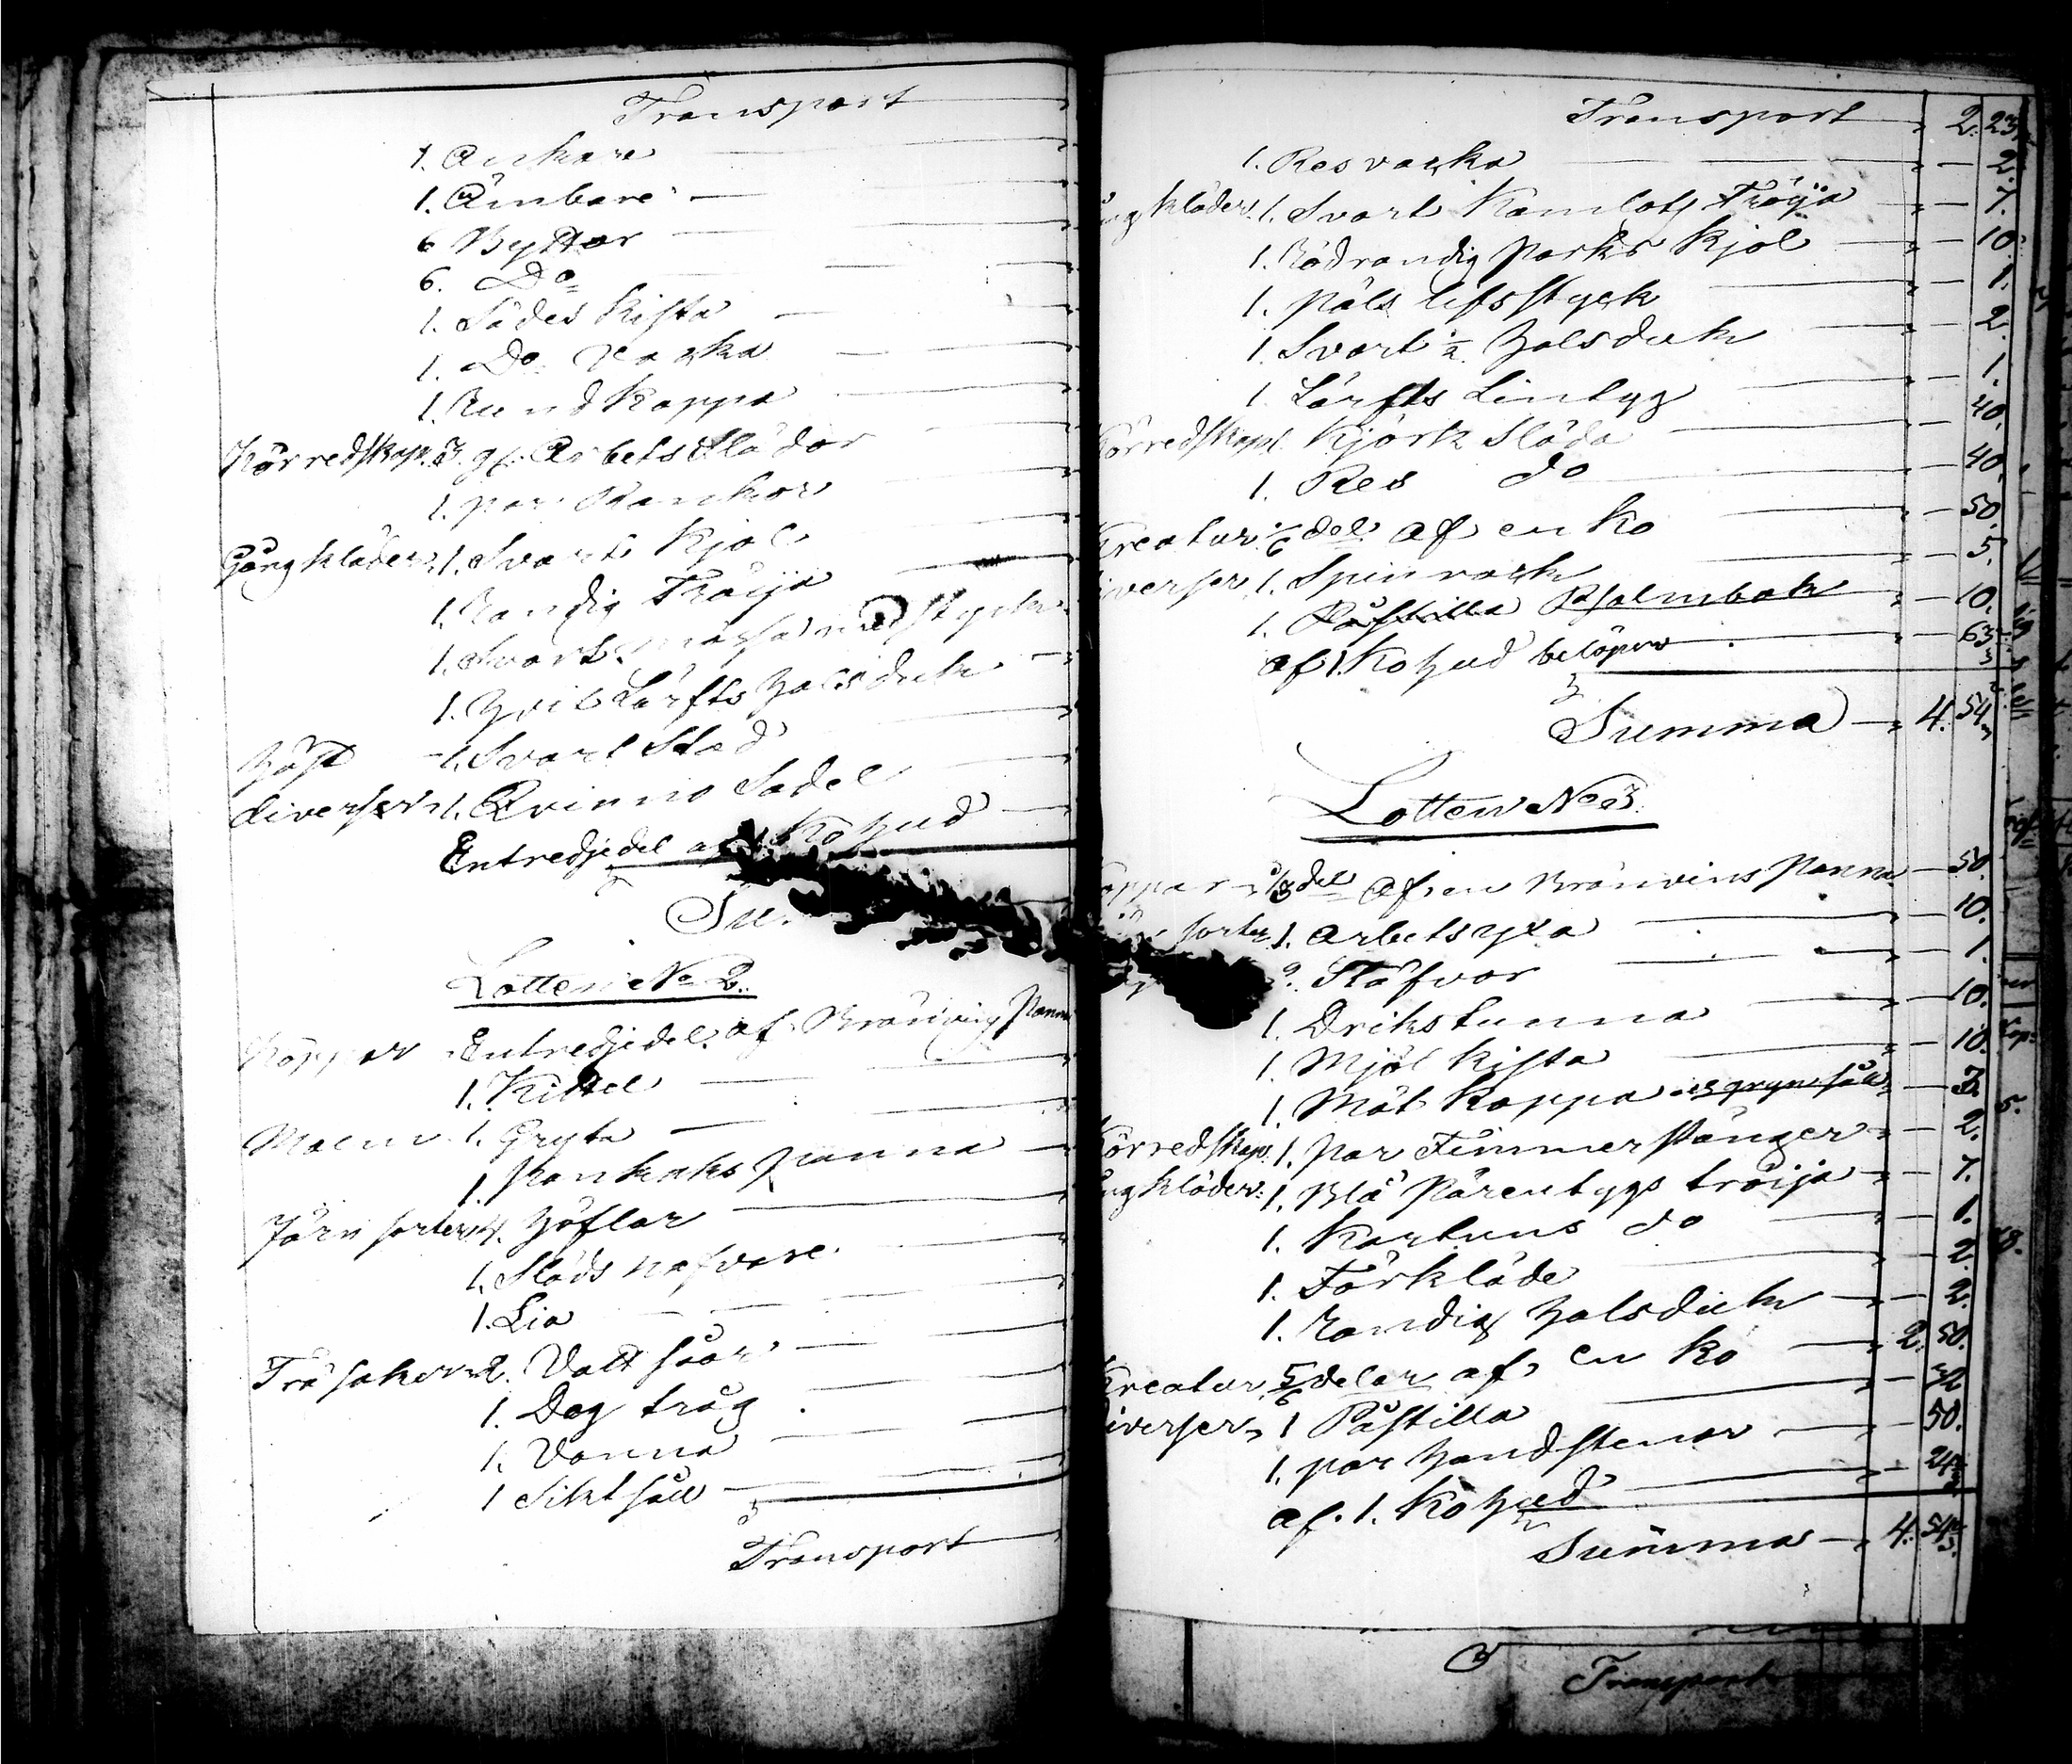 Transport
1. Ankare
1. Ämbare
6 Byttor
6. Do
1. Sädes Kista
1. Do Väska
1. Rund Kappa
Körredskap. 3. gl. Arbets Slädor
1. par Rankor
Gångkläder. 1. Svart Kjol
1. Randig Tröija
1. Svart mössa med stycke
1. Hvit Lärfts Halsduk
Häst 1. Svart Stod
diverser 1. Qvinno Sadel
Entredjedel af 1 Kohud
Su
Lotten No 2.
Koppar Entredjedel af Bränvins Panna
1. Kittel
Malm 1. Gryta
1. Pankaks panna
Järn sorter 4. Höflar
1. Släds nafvare
1. Lia
Träsaker 2. Vatt såar
1. Deg tråg
1. Vanna
1 Sikt såll
Transport
Transport 2. 23
1. Resväska 2.
ång kläder. 1. Svart Kamlots Tröija 7.
1. Rödrandig Parks Kjol 10.
1. päls lifsstyck 1.
1. Svart ½ Halsduk 2.
1. Lärfts Lintyg 1.
Körredskap 1. Kjörk Släda 40.
1. Res do 40.
Kreatur 1/6 del af en Ko 50.
iverser 1. Spinrock 5.
1. Påstilla Psalmbok 10.
af 1. Kohud belöper 63
Summa 4. 54
Lotten No 3.
oppar 1/3 del af en Bränvins Panna 50.
sorter 1. Arbetsyxa 10.
Stäfvor 1.
1. Drikstunna 10.
1. Mjöl Kista 10.
1. Mät Kappa gryn såll 3.
Körredskap. 1. par Timmer stänger 2.
ng kläder. 1. Blå Pärentygs tröija 7.
1. Kartuns do 1.
1. Förkläde 2.
1. Randig Halsduk 2.
Kreatur 5/6 delar af en Ko 2. 50.
iverser 1 Påstilla 32
1. par Handstenar 50.
af. 1. Kohud 24
Summa 4. 54
Transport